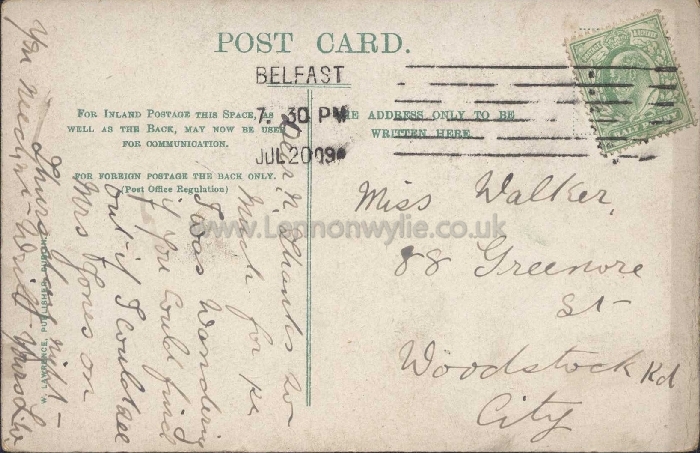 POST CARD.
BELFAST
7. 30 PM
JUL 20 09
FOR INLAND POSTAGE THIS SPACE, AS
WELL AS THE BACK, MAY NOW BE USED
FOR COMMUNICATION.
FOR FOREIGN POSTAGE THE BACK ONLY.
(Post Office Regulation)
THE ADDRESS ONLY TO BE
WRITTEN HERE.
W. LAWRENCE, PUBLISHER, DUBLIN
www.Lennonwylie.co.uk
Miss Walker,
88 Greenore
St
Woodstock Rd
City
Dear N. Thanks so
Much for
I was Wondering
if you Could find
out if I Could see
Mrs Jones on
Thursday night
You Need not Write